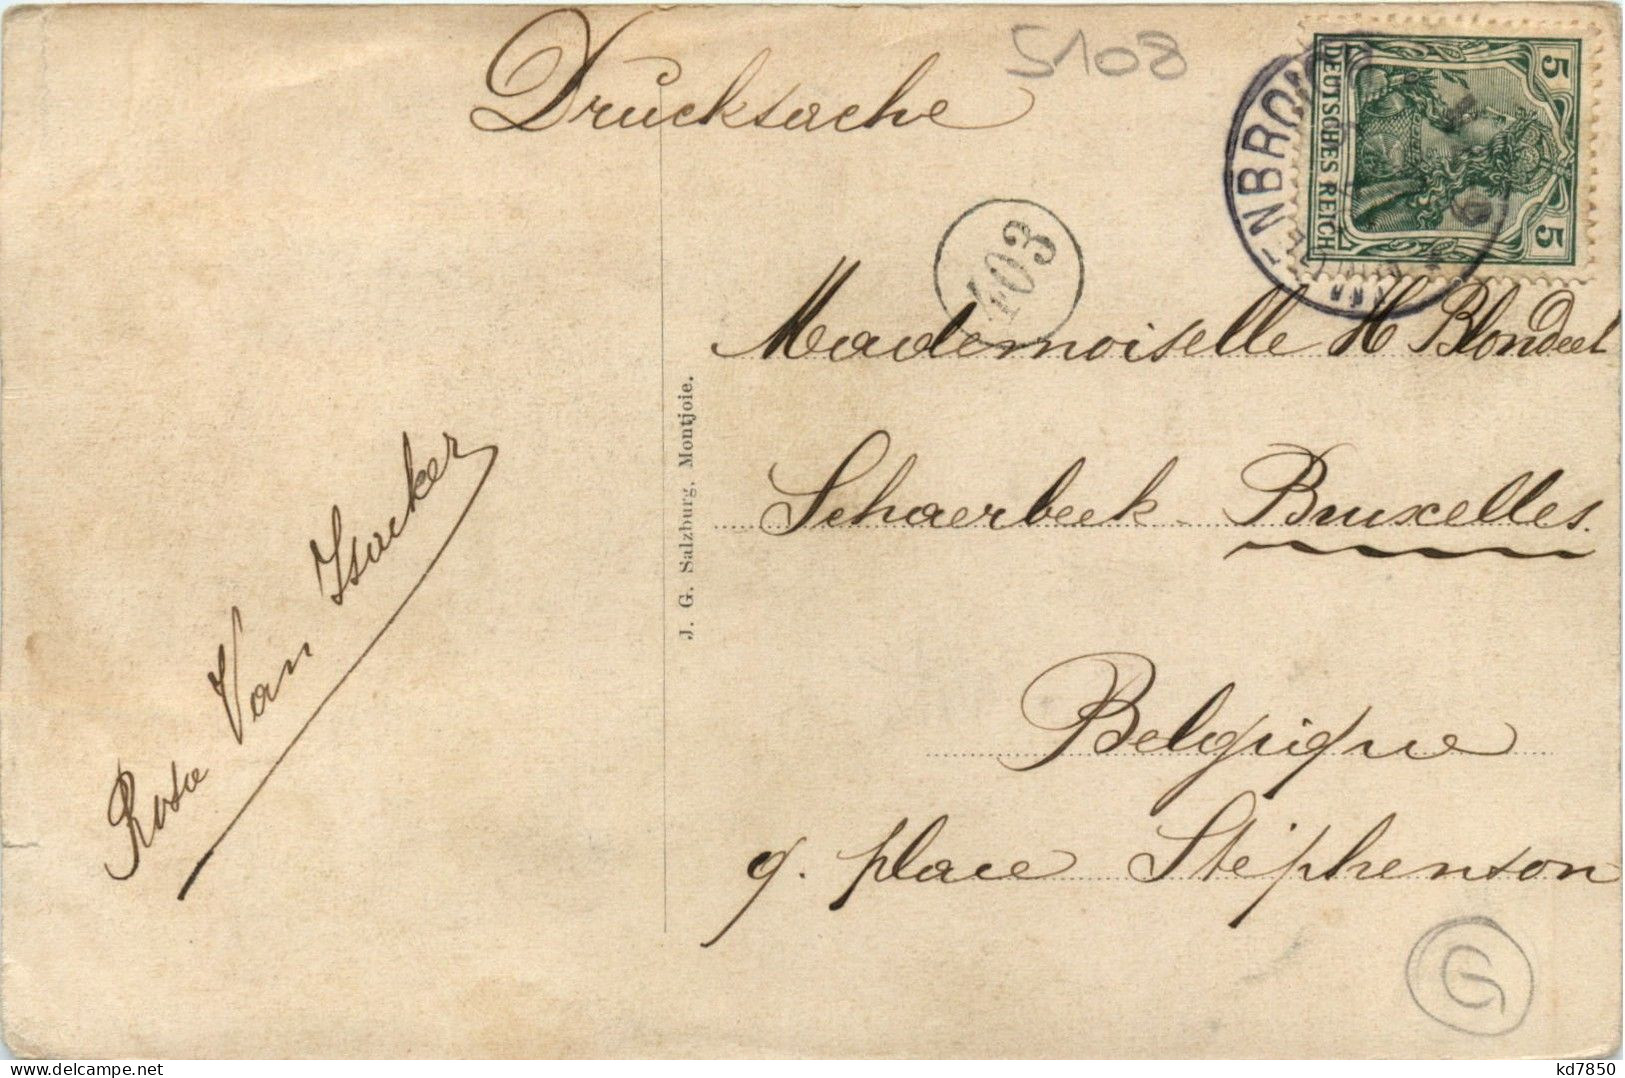 Drucksache
5108
DEUTSCHES REICH
5
5
403
Mademoiselle H Blondeel
Schaerbeek - Bruxelles.
Belgique
9. place Stéphenson
J. G. Salzburg, Montjoie.
Rosa Van Isacker
G
kd7850